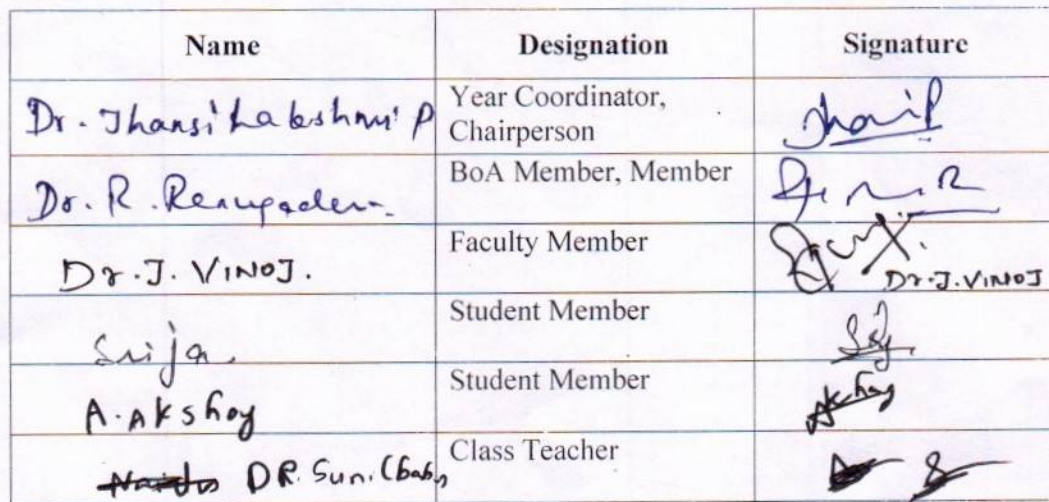 Name Designation Signature
Dr. Jhansi Lakshmi P Year Coordinator,
Chairperson Jhansi P
Dr. R. Renugadevi BoA Member, Member
Dr. J. VINOJ. Faculty Member
Dr. J. VINOJ
Srija Student Member
A. Akshay Student Member Akshay
DR. Sunil babu Class Teacher